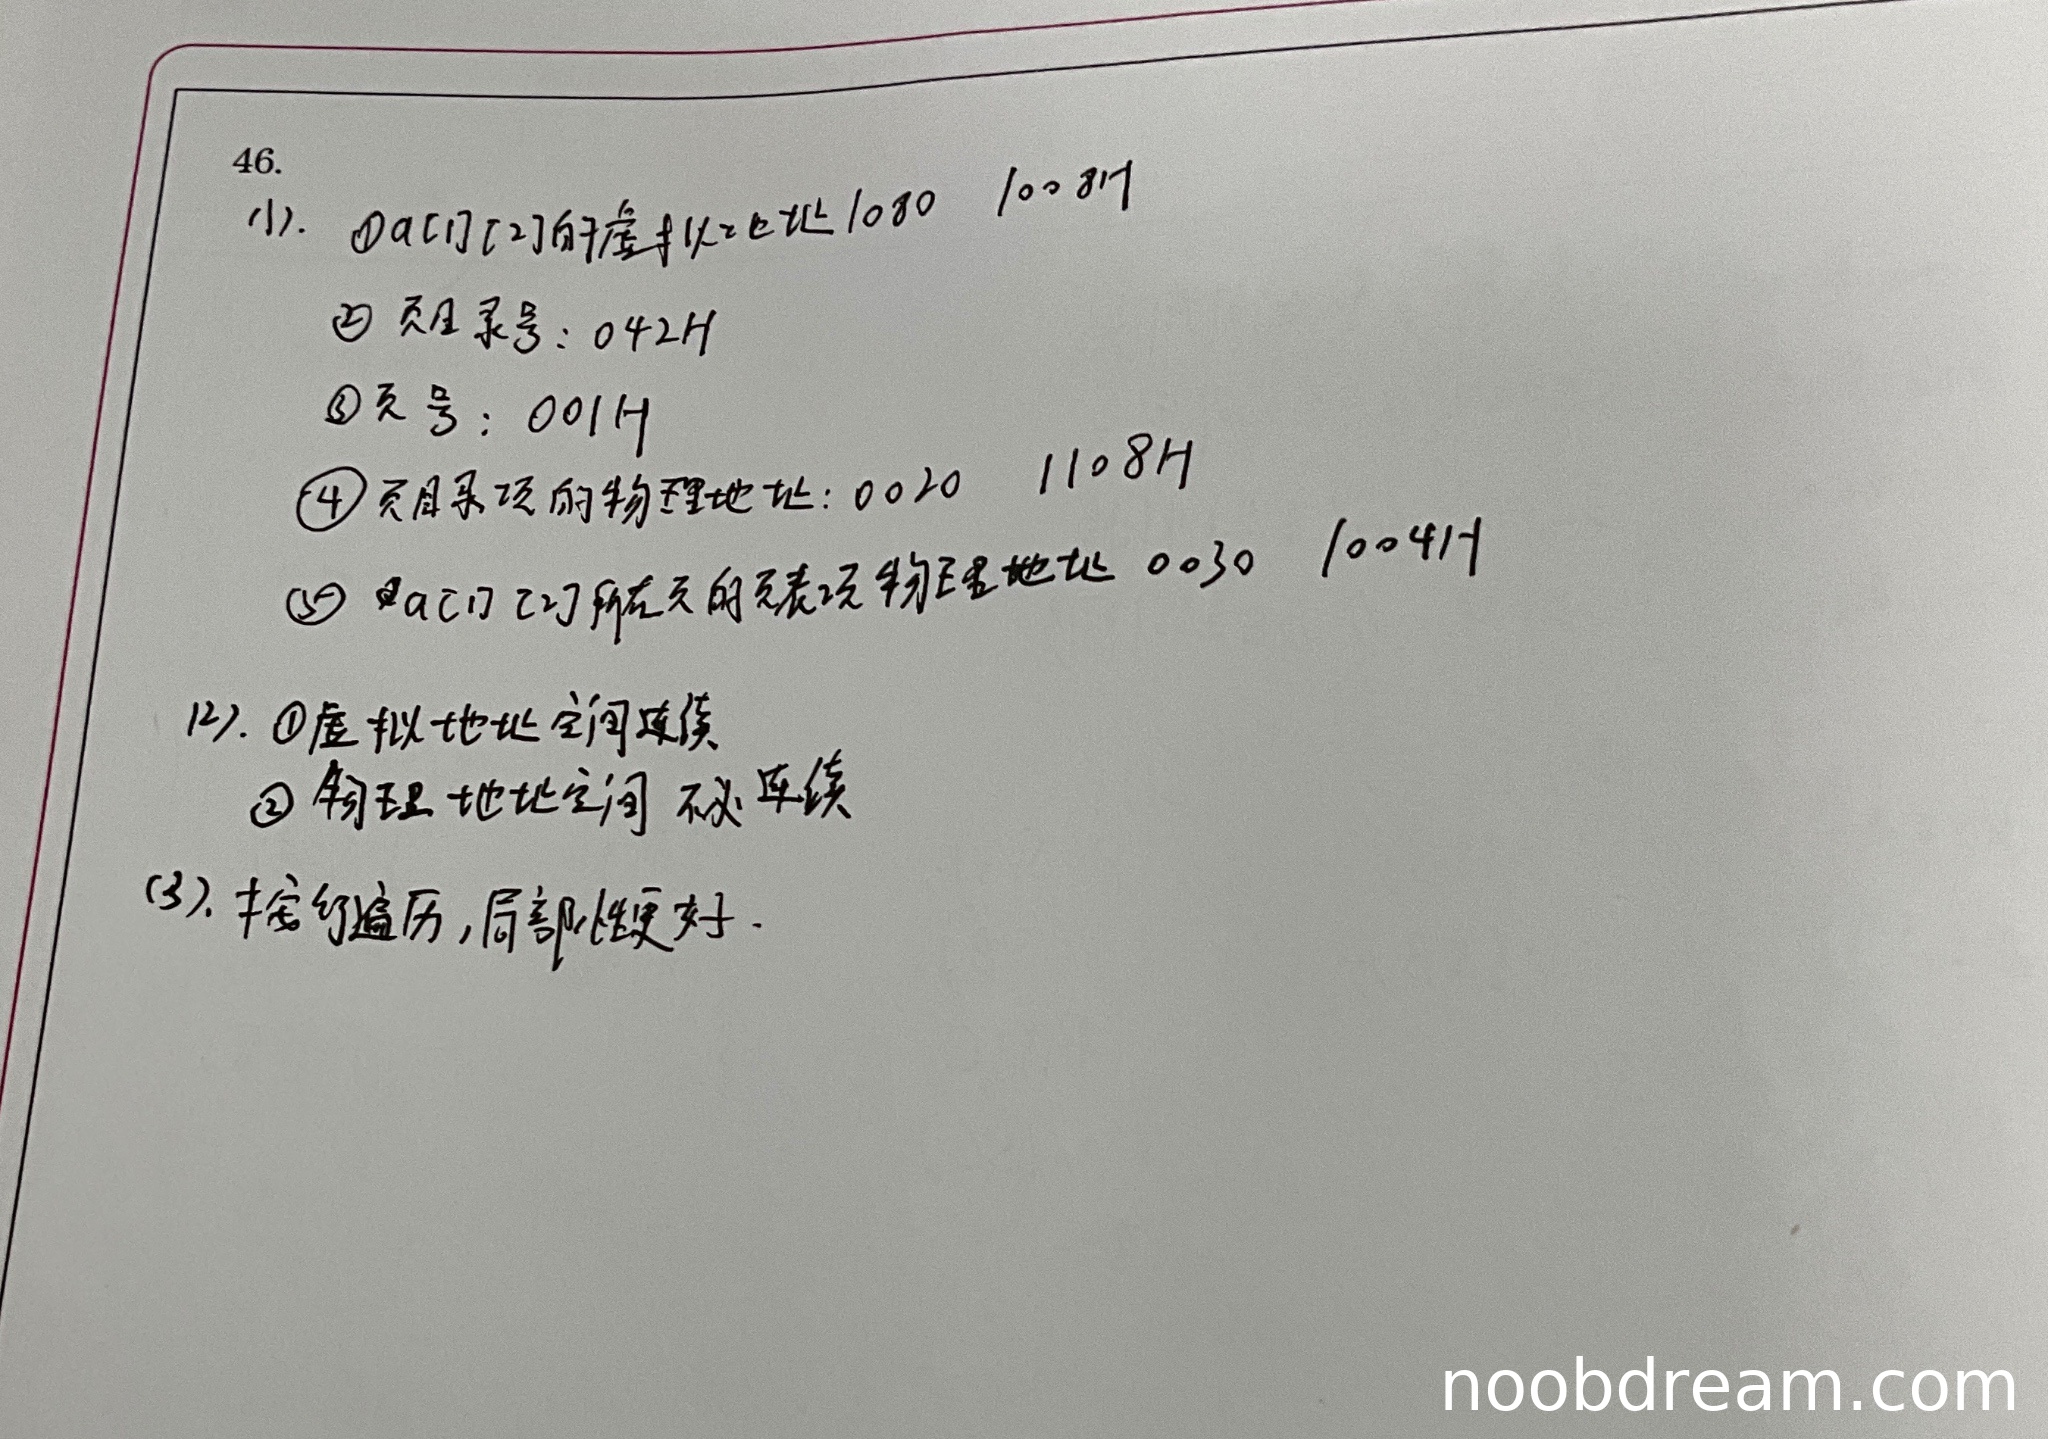 46.
(1). ①a[1][2]的虚拟地址1080 1008H
② 页目录号: 042H
③页号: 001H
④页目录项的物理地址: 0020 1108H
⑤ a[1][2]所在页的页表项物理地址 0030 1004H
(2). ①虚拟地址空间连续
② 物理地址空间不必连续
(3). 按行遍历,局部性更好.
noobdream.com